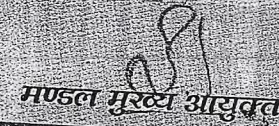 मण्डल मुख्य आयुक्त